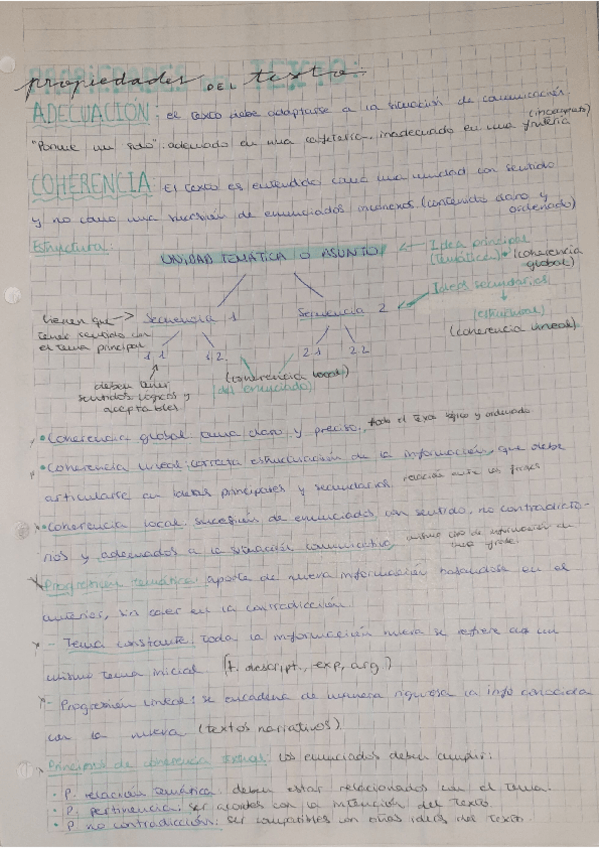 propiedades DEL texto:
ADECUACIÓN: el texto debe adaptarse a la situación de comunicación
"Ponme un solo": adecuado en una cafetería, inadecuado en una frutería (incorrecto)
COHERENCIA: El texto es entendido como una unidad con sentido
y no como una sucesión de enunciados inconexos (contenido claro y ordenado)
Estructura:
UNIDAD TEMÁTICA O ASUNTO ← Idea principal
(Temática) (coherencia global)
Ideas secundarias
tienen que → Secuencia 1 Secuencia 2
tener sentido con
el tema principal
(estructural)
(coherencia lineal)
1.1 1.2 2.1 2.2
(coherencia local)
(del enunciado)
deben tener
sentidos lógicos y
aceptables
• Coherencia global: tema claro y preciso, todo el texto lógico y ordenado
• Coherencia lineal: correcta estructuración de la información, que debe
articularse en ideas principales y secundarias relación entre las frases
• Coherencia local: sucesión de enunciados con sentido, no contradicto-
rios y adecuados a la situación comunicativa,
Progresión temática: aporte de nueva información basándose en el
anterior, sin caer en la contradicción
- Tema constante: toda la información nueva se refiere a un
mismo tema inicial (t. descript., exp, arg)
- Progresión lineal: se encadena de manera rigurosa la info conocida
con la nueva (textos narrativos)
Principios de coherencia textual: los enunciados deben cumplir:
· P. relación temática: deben estar relacionados con el tema.
· P. pertinencia: ser acordes con la intención del texto.
· P. no contradicción: ser compatibles con otras ideas del texto.